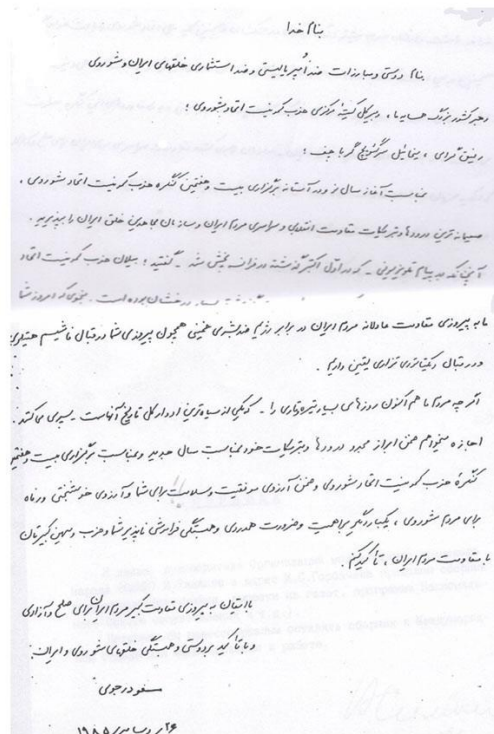 بنام خدا
بنام دوستی و مبارزات ضد امپریالیستی و ضد استثماری خلقهای ایران و شوروی
رهبر کشور بزرگ همسایه ما ، دبیر کل کمیتهٔ مرکزی حزب کمونیست اتحاد شوروی ؛
رفیق گرامی ، میخائیل سرگئیویچ گورباچف ؛
بمناسبت آغاز سال نو و در آستانه برگزاری بیست و هفتمین کنگره حزب کمونیست اتحاد شوروی ،
صمیمانه ترین درودها و تبریکات مقاومت انقلابی و سراسری مردم ایران و سازمان مجاهدین خلق ایران را بپذیرید .
آنچنانکه در پیام تلویزیونی - که در اول اکتبر گذشته در فرانسه پخش شد - گفتید ؛ بیلان حزب کمونیست اتحاد
درخشان بوده است . بنحوی که امروز شما
ما به پیروزی مقاومت عادلانه مردم ایران در برابر رژیم ضد بشری خمینی همچون پیروزی شما در قبال فاشیسم هیتلری
و در قبال دیکتاتوری تزاری یقین داریم .
اگر چه مردم ما هم اکنون روزهای بسیار تیره و تاری را - که یکی از سیاه ترین ادوار کل تاریخ آنهاست - سپری می‌کنند .
اجازه میخواهم ضمن ابراز مجدد درودها و تبریکات خود بمناسبت سال جدید و بمناسبت برگزاری بیست و هفتمین
کنگرهٔ حزب کمونیست اتحاد شوروی و ضمن آرزوی موفقیت و سلامت برای شما و آرزوی خوشبختی و رفاه
برای مردم شوروی ، یکبار دیگر بر اهمیت و ضرورت همدردی و همبستگی فراموشی ناپذیر شما و حزب و میهن کبیرتان
با مقاومت مردم ایران ، تأکید کنم .
با ایمان به پیروزی مقاومت کبیر مردم ایران برای صلح و آزادی
و با تأکید بر دوستی و همبستگی خلقهای شوروی و ایران
مسعود رجوی